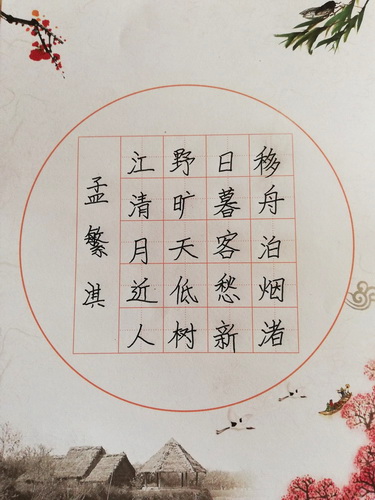 移舟泊烟渚
日暮客愁新
野旷天低树
江清月近人
孟繁淇